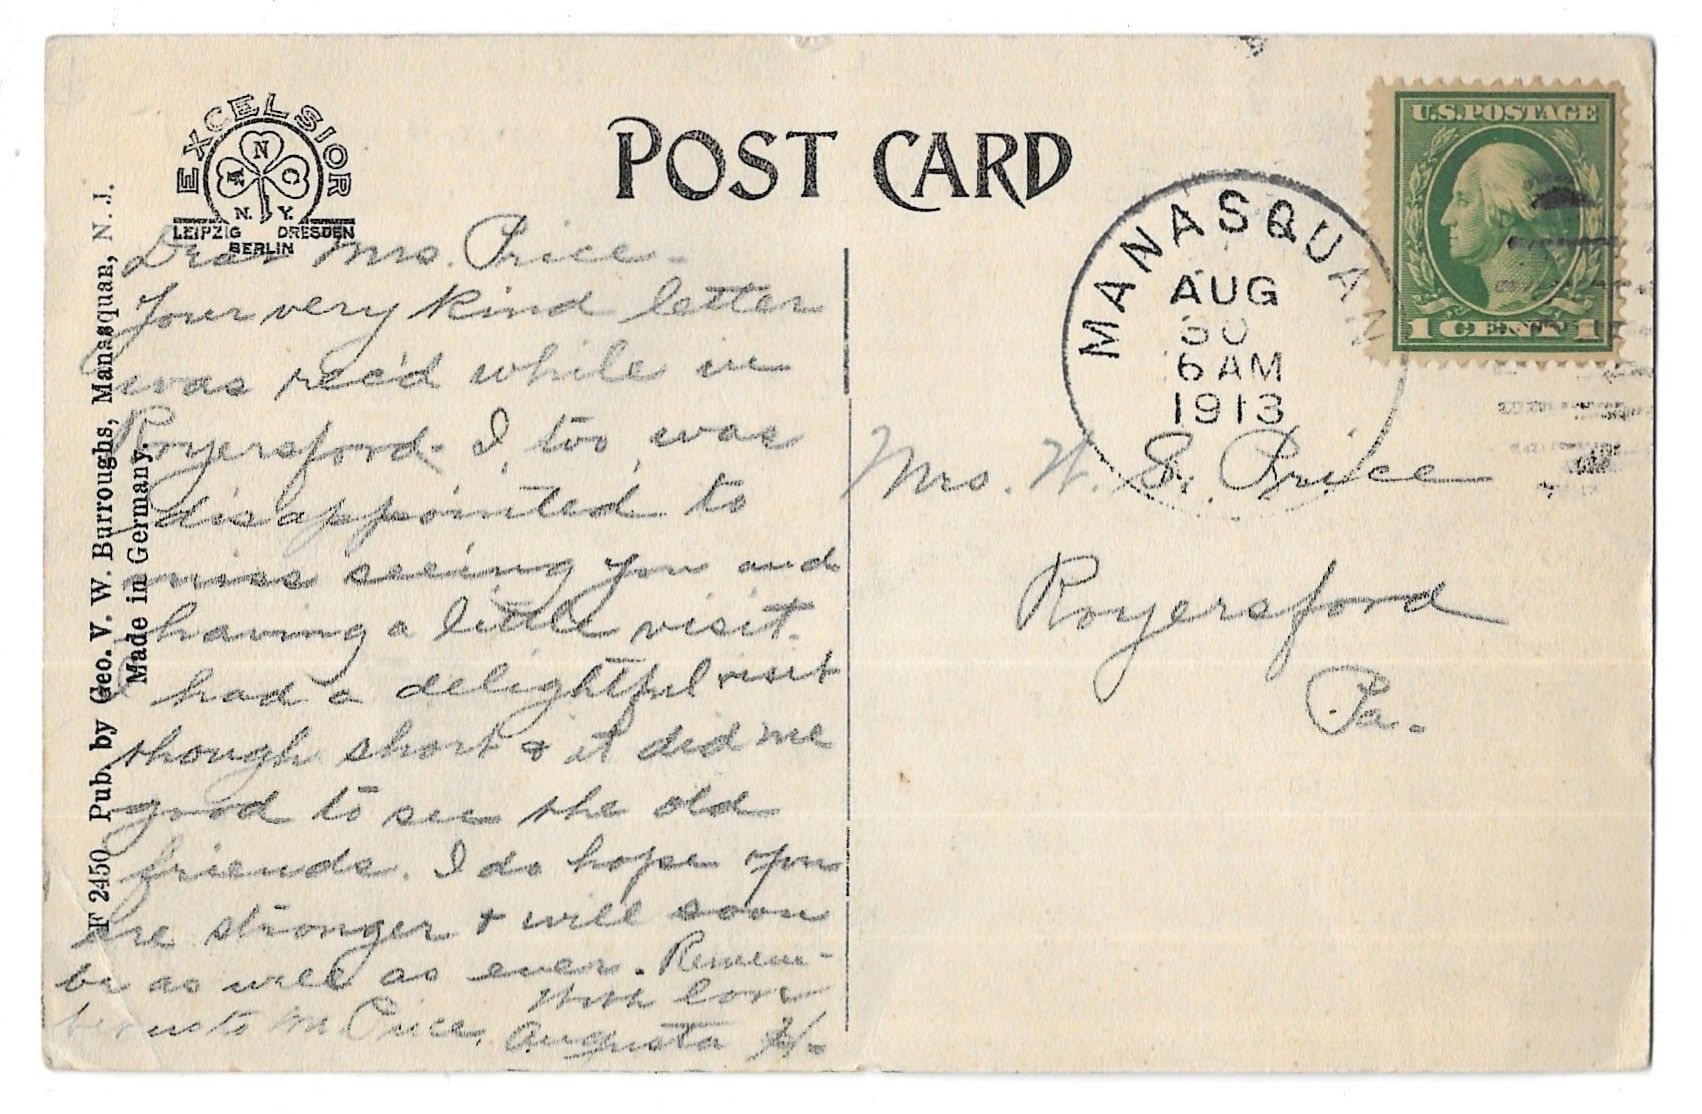 EXCELSIOR
A N C
N. Y.
LEIPZIG DRESDEN
BERLIN
POST CARD
U.S. POSTAGE
1 CENT 1
MANASQUAN
AUG
30
6 AM
1913
F 2450 Pub. by Geo. V. W. Burroughs, Manasquan, N. J.
Made in Germany.
Dear Mrs. Price-
Your very kind letter
was rec'd while in
Royersford. I, too, was
disappointed to
miss seeing you and
having a little visit.
I had a delightful visit
though short & it did me
good to see the old
friends. I do hope you
are stronger & will soon
be as well as ever. Remem-
ber us to Mr. Price.
With love
Augusta H.
Mrs. W. S. Price
Royersford
Pa.